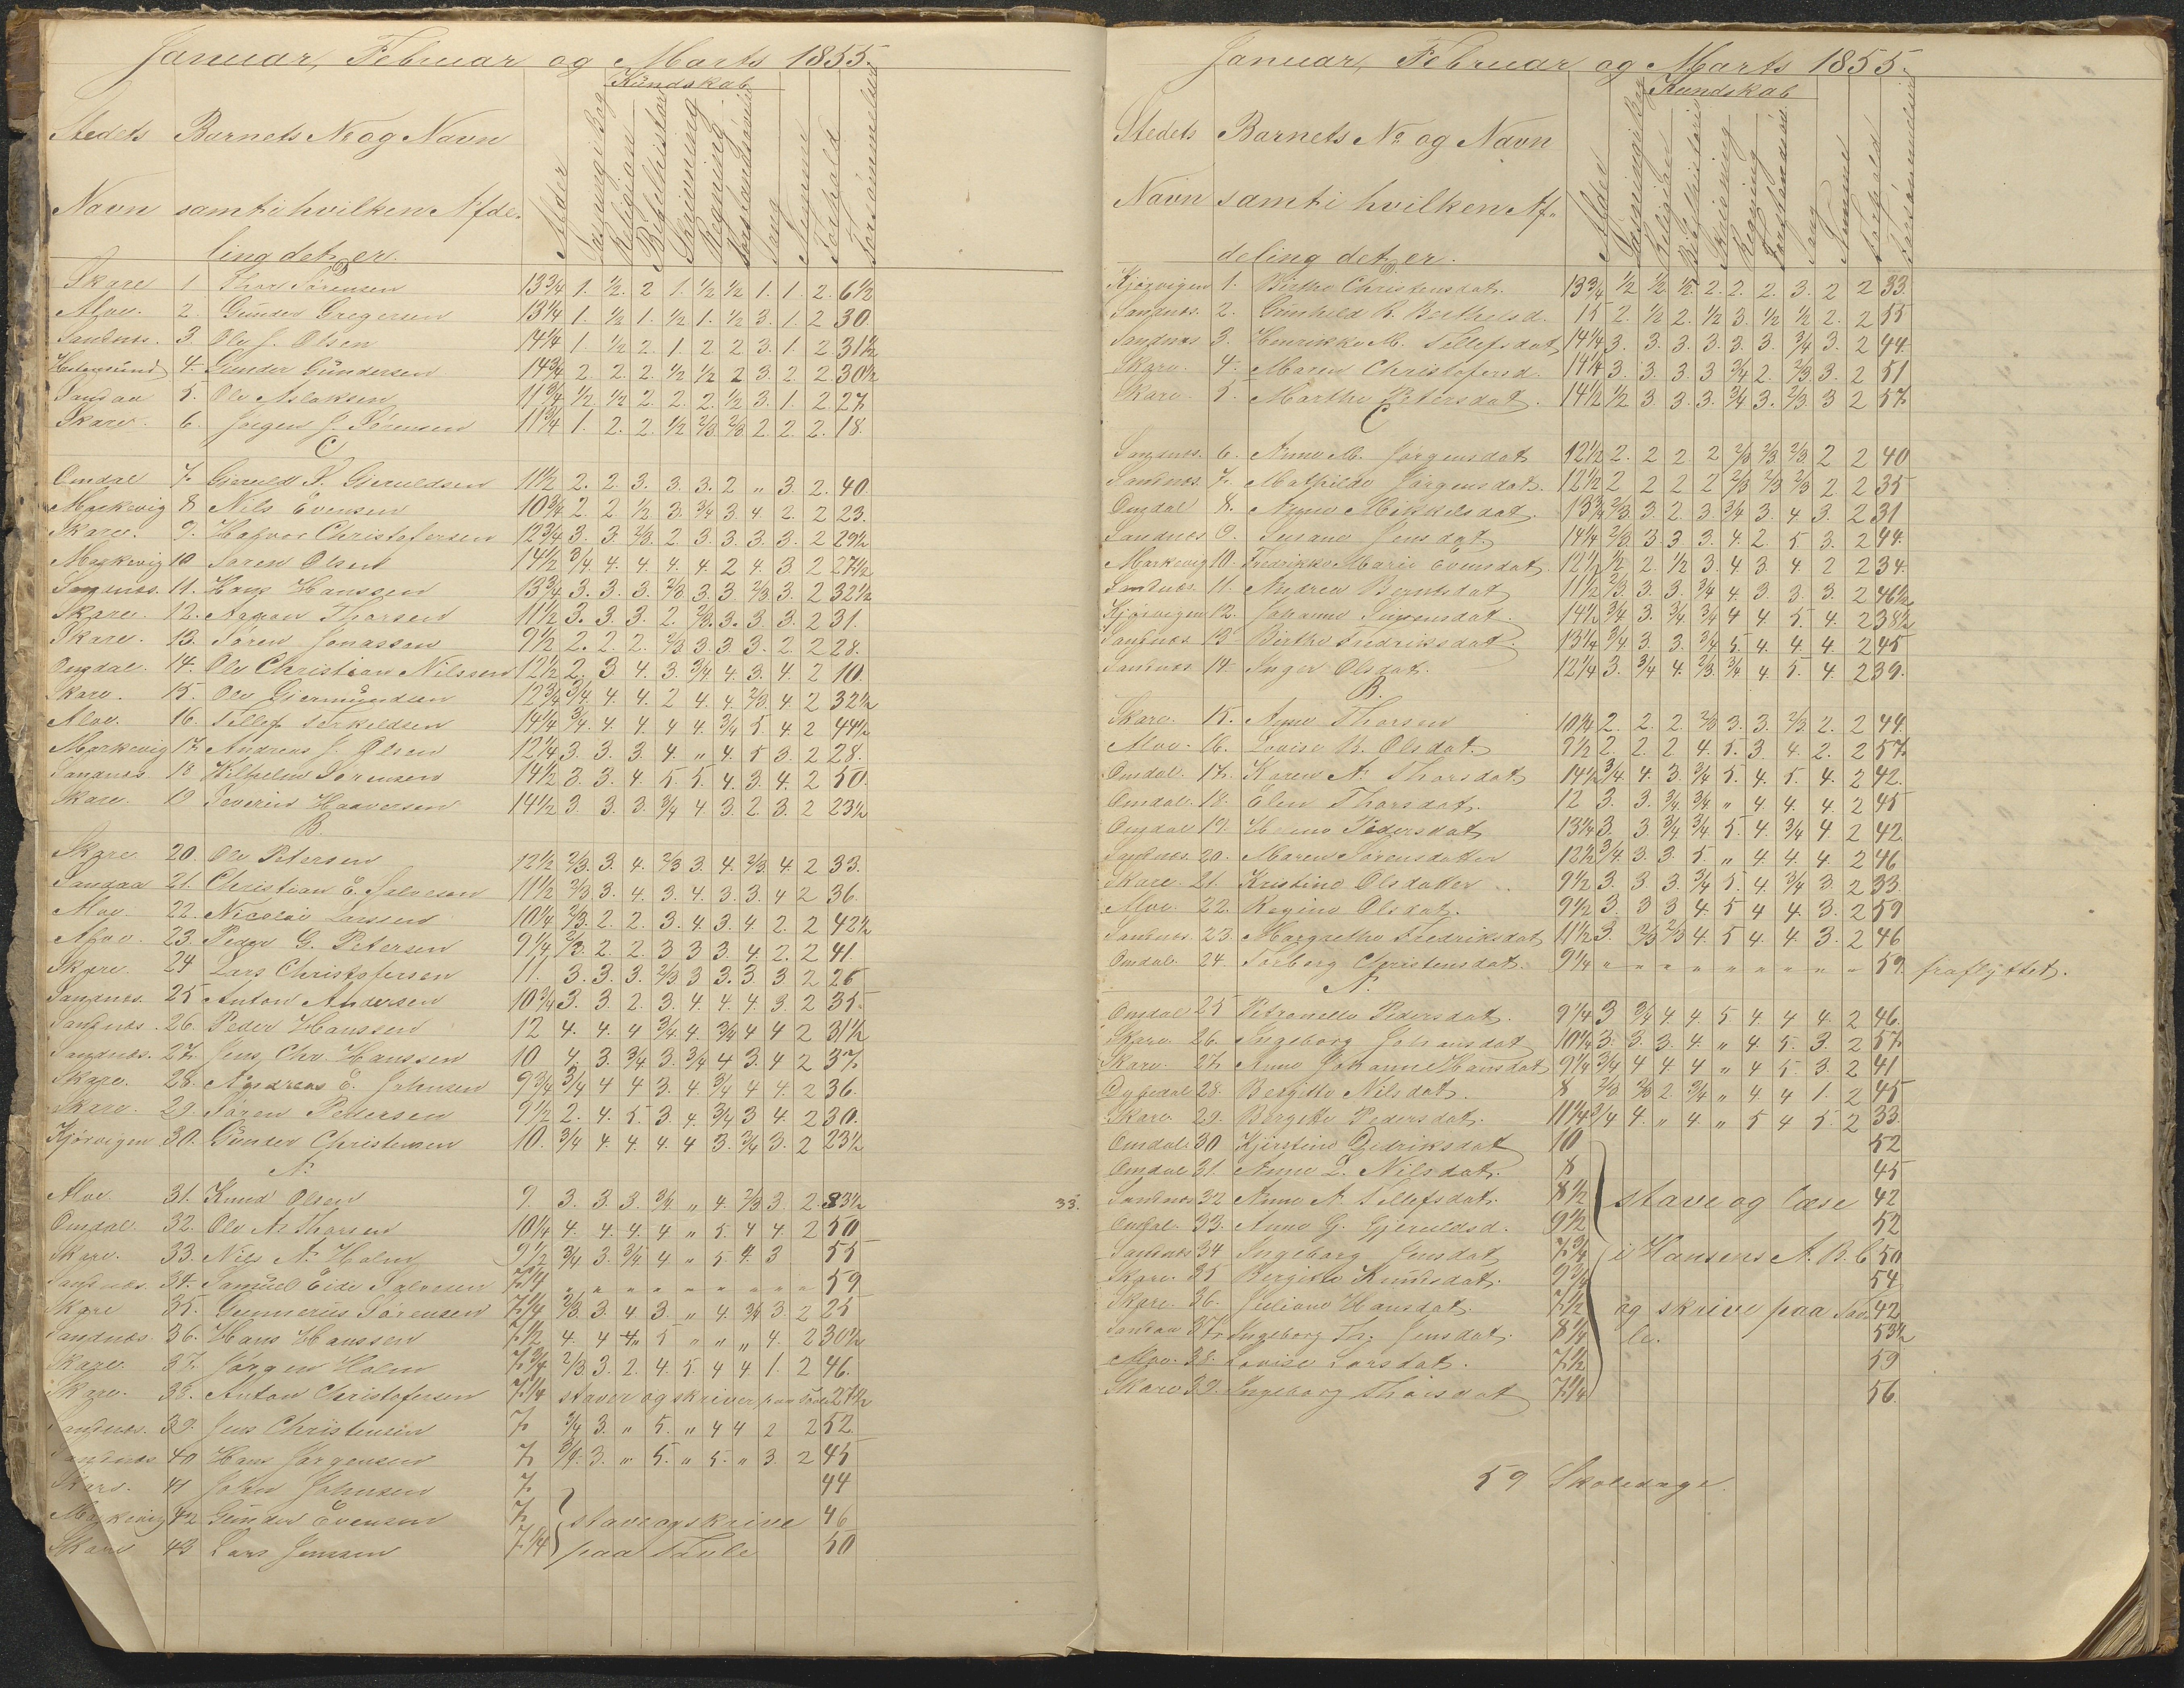 Januar, Februar og Marts 1855.
Kundskab
Stedets Barnets No og Navn
Navn samt i hvilken Afde-
ling det er.
Alder Religion Bibelhistorie Skrivning Regning Sang Nemme Forhold Forsømmelser
D
Skare 1 Thor Sørensen 13 3/4 1. 1/2. 2 1. 1/2 1/2 1. 1. 2. 6 1/2
Aloe. 2. Gunder Gregersen 13 1/4 1. 1/2 1. 1/2 1. 1/2 3. 1. 2 30.
Sandnæs. 3. Ole J. Olsen 14 1/4 1. 1/2 2 1. 2 2 3. 1. 2 31 1/2
4. Gunder Gundersen 14 3/4 2 2. 2. 1/2 1/2 2 3. 2. 2. 30 1/2
Sandaa 5. Ole Aslaksen 11 3/4 1/2. 1/2 2 2. 2. 1/2 3. 1. 2 27
Skare. 6. Jørgen J. Sørensen 11 3/4 1. 2. 2. 1/2 2/3 2/3 2. 2. 2. 18.
C
Omdal 7. Gjeruld P. Gjeruldsen 11 1/2 2. 2. 3. 3. 3. 2 " 3 2. 40.
Markevig 8 Nils Evensen 10 3/4 2. 2 1/2 3. 3/4 3. 4 2. 2 23.
Skare. 9. Halvor Christofersen 12 3/4 3. 3. 2/3 2 3. 3. 3. 3. 2 29 1/2
Markevig 10 Søren Olsen 14 1/2 3/4 4. 4. 4. 4. 2 4. 3 2 27 1/2
Sandnæs. 11. Hans Hanssen 13 3/4 3. 3. 3. 2/3 3. 3 2/3 3. 2 32 1/2
Skare. 12. Aanon Thorsen 11 1/2 3. 3. 3. 2. 2/3. 3. 3. 3. 2 31.
Skare. 13. Søren Jonassen 9 1/2 2. 2. 2. 2/3 3. 3. 3. 2. 2 28.
Omdal. 14. Ole Christian Nilssen 12 1/2 2. 3 4. 3. 3/4 4. 3. 4. 2 10.
Skare. 15. Ole Gjermundsen 12 3/4 3/4. 4. 4. 2 4. 4. 2/3. 4. 2 32 1/2
Aloe. 16. Tellef Terkeldsen 14 1/4 3/4. 4. 4. 4. 4. 3/4 5. 4. 2 44 1/2
Markevig 17. Andreas J. Olsen 12 1/4 3. 3. 3 4. " 4. 5 3. 2 28.
Sandnæs 18 Wilhelm Sørensen 14 1/2 3 3. 4. 5 5. 4. 3. 4. 2 50.
Skare. 19 Severin Haaversen 14 1/2 3. 3 3. 3/4 4 3. 2. 3. 2 23 1/2
B.
Skare 20. Ole Petersen 12 1/2 2/3. 3. 4. 2/3 3. 4. 2/3. 4. 2 33.
Sandaa 21. Christian E. Salvesen 11 1/2 2/3 3. 4. 3. 4. 3. 3. 4 2 36.
Aloe. 22. Nicolai Larssen 10 1/4 2/3. 2. 2. 3. 4. 3. 4. 2. 2 42 1/2
Aloe. 23. Peder G. Petersen 9 1/4 2/3. 2. 2. 3 3 3. 4. 2. 2 41.
Skare. 24 Lars Christofersen 11. 3. 3. 3. 2/3 3 3. 3. 3 2 26
Sandnæs 25 Anton Andersen 10 3/4 3. 3 2. 3. 4. 4. 4. 3 2 35.
Sandnæs. 26. Peder Hanssen 12 4. 4. 4 3/4. 4. 3/4 4 4 2 31 1/2
Sandnæs. 27. Jens Chr. Hanssen 10 4. 3. 3/4 3. 3/4 4 3. 4 2 37.
Skare. 28. Andreas E. Johnsen 9 3/4 3/4 4 4 3. 4 3/4 4 4. 2 36.
Skare. 29. Søren Pedersen 9 1/2 2. 4. 5. 3. 4. 3/4 3 4. 2 30.
Kjørvigen 30. Gunder Christensen 10. 3/4 4. 4. 4. 4 3. 3/4 3. 2 23 1/2
A.
Aloe 31. Knud Olsen 9. 3. 3. 3. 3/4. " 4. 2/3 3. 2. 33 1/2
Omdal. 32. Ole A. Thorsen 10 1/4 4. 4. 4. 4 " 5. 4 4 2 50
Skare. 33. Nils A. Holm 9 1/2 3/4 3. 3/4 4 " 5 4. 3 55
Sandnæs. 34. Samuel Eide Salvesen 7 1/4 " " " " " " " " " 59
Skare 35. Gunnerius Sørensen 7 1/4 2/3. 3. 4 3. " 4. 3/4 3. 2 25
Sandnæs. 36. Hans Hanssen 7 1/2 4. 4 4 5 " " " 4. 2 30 1/2
Skare. 37. Jørgen Holm 7 3/4 2/3. 3. 2. 4. 5. 4 4 1. 2 46.
Skare. 38. Anton Christofersen 7 1/4 staver og skriver paa 27 1/2
Sandnæs. 39. Jens Christensen 7 3/4 3. " 5. " 4 4 2 2 52
Sandnæs 40 Hans Jørgensen 7 3/4. 3. " 5. " 5. " 3. 2 45
Skare. 41 John Johnsen 7. 44
Markevig 42 Gunder Evensen 7. stave og skrive 46
Skare 43 Lars Jenssen 7 1/4 paa Tavle 50
33.
Januar, Februar og Marts 1855.
Kundskab
Stedets Barnets No og Navn
Navn samt i hvilken Af-
deling det er.
Alder Religion Bibelhistorie Skrivning Regning Sang Nemme Forhold Forsømmelser
D.
Kjørvigen 1. Birthe Christensdat. 13 3/4 1/2 1/2 1/2 2. 2. 2. 3. 2 2 33
Sandnæs. 2. Gunhild R. Berthelsd. 15 2. 1/2 2. 1/2 3. 1/2 1/2 2. 2 55
Sandnæs 3. Henrikke M. Tellefsdat 14 1/4 3. 3. 3. 3. 3. 3. 3/4 3. 2 44.
Skare. 4. Maren Christofersd. 14 1/4 3. 3. 3. 3 3/4 2. 2/3 3. 2 51
Skare. 5. Marthe Petersdat. 14 1/2 1/2 3. 3. 3. 3/4 3. 2/3 3 2 57.
C
Sandnæs. 6. Anne M. Jørgensdat 12 1/2 2. 2 2 2 2/3 2/3 2/3 2 2 40
Sandnæs. 7. Mathilde Jørgensdat. 12 1/2 2 2 2 2 2/3 2/3 2/3 2 2 35
Omdal 8. Anne Mikkelsdat. 13 3/4 2/3. 3. 2. 3 3/4 3. 4. 3. 2 31
Sandnæs 9. Susane Jensdat. 14 1/4 2/3. 3 3 3. 4. 2. 5 3. 2 44.
Markevig 10. Fredrikke Marie Evensdat. 12 1/2 1/2 2. 1/2 3. 4. 3. 4 2 2 34
Sandnæs. 11. Andrea Berntsdat 11 1/2 2/3. 3. 3. 3/4 4 3. 3. 3 2 46 1/2
Kjørvigen 12. Johanne Simonsdat. 14 1/2 3/4 3. 3/4 3/4 4 4 5. 4. 2 38 1/2
Sandnæs 13 Birthe Fredriksdat. 13 1/4 3/4. 3. 3. 3/4 5. 4. 4. 4. 2 45
Sandnæs 14 Inger Olsdat. 12 1/4 3. 3/4 4. 2/3. 3/4 4. 5. 4. 2 39.
B.
Skare. 15. Anne Thorsen 10 1/4 2. 2. 2. 2/3 3. 3. 2/3. 2. 2 44.
Aloe. 16. Lovise B. Olsdat. 9 1/2 2. 2. 2 4. 5. 3 4. 2. 2 57.
Omdal. 17. Karen A. Thorsdat. 14 1/2 3/4. 4. 3. 3/4 5. 4. 5. 4. 2 42.
Omdal. 18. Elen Thorsdat. 12 3. 3. 3/4. 3/4 " 4. 4. 4. 2 45
Omdal 19. Pedersdat 13 1/4 3. 3. 3/4 3/4. 5. 4. 3/4 4 2 42.
Sandnæs. 20. Maren Sørensdatter 12 1/2 3/4. 3. 3. 5. " 4. 4. 4. 2 46
Skare. 21. Kristine Olsdatter 9 1/2 3. 3. 3. 3/4 5. 4. 3/4 3. 2 33.
Aloe. 22. Regine Olsdat. 9 1/2 3. 3 3 4. 5 4 4. 3. 2 59
Sandnæs. 23. Margrethe Fredriksdat 11 1/2 3. 2/3 2/3 4. 5 4. 4. 3. 2 46
Omdal. 24. Torborg Christensdat. 9 1/4 " " " " " " " " " 59. fraflyttet.
A.
Omdal 25 Petronelle Pedersdat. 9 1/4 3 3/4 4. 4. 5 4. 4 4. 2 46.
Skare. 26. Ingeborg Johansdat 10 1/4 3. 3. 3. 4. " 4. 5. 3. 2 57.
Skare. 27. Anne Johanne Hansdat 9 1/4 3/4 4 4. 4 " 4 5. 3. 2 41
28. Bergitte Nilsdat. 8 2/3 2/3 2. 3/4 " 4 4 1. 2 45
Skare. 29. Bergitte Pedersdat. 11 1/4 3/4 4. " 4. " 5 4 5. 2 33.
Omdal. 30 Kjerstine Didriksdat 10 52
Omdal 31. Anne L. Nilsdat. 8 45
Sandnæs 32 Anne A. Tellefsdat. 8 1/2 stave og læse 42
Omdal. 33. Anne G. Gjeruldsd. 9 1/2 52
Sandnæs 34 Ingeborg Jensdat. 7 3/4 i Hansens A. B. C 50
Skare. 35 Bergitte Knudsdat. 9 3/4 54
Skare. 36. Juliane Hansdat. 7 1/2 og skrive paa Tav- 42
Sandaa 37. Ingeborg Th. Jensdat. 8 1/4 le. 53 1/2
Aloe. 38. Lovise Larsdat. 7 1/2 59
Skare 39. Ingeborg Thorsdat 7 1/4 56.
59 Skoledage.